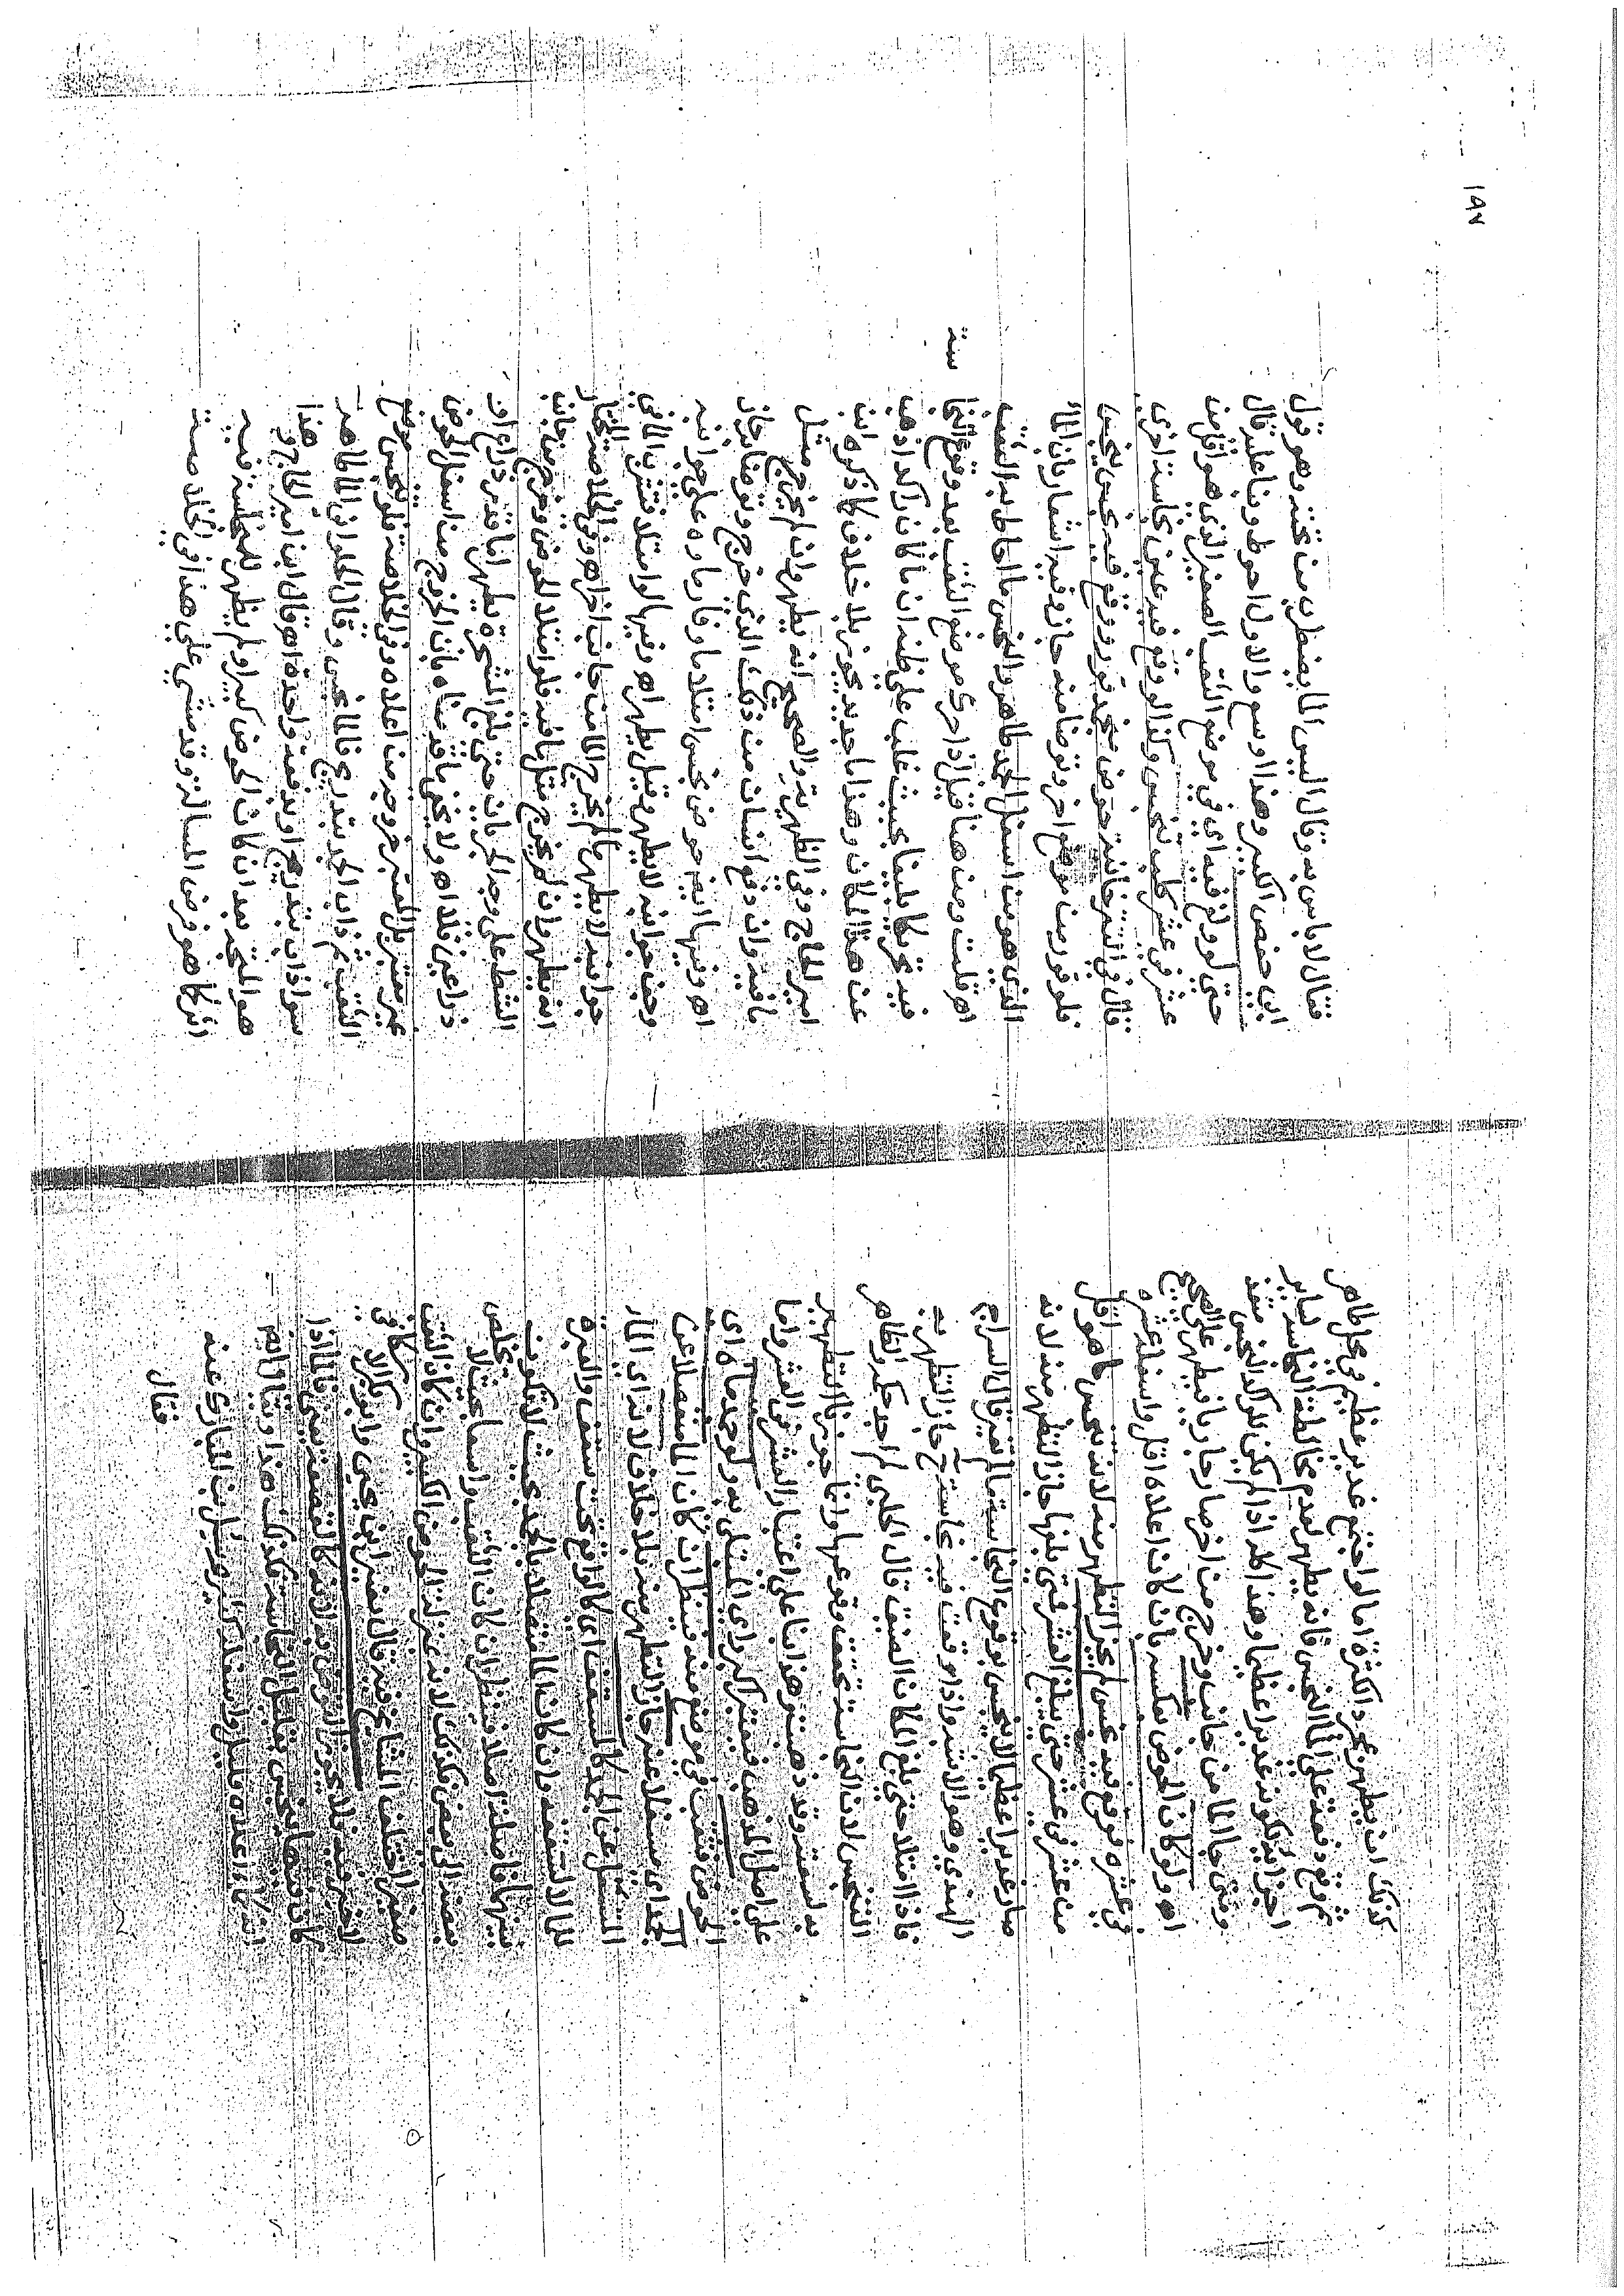 كذلك ان يطهر بمجرد الكثرة اما لو اجتمع غدير عظيم في محل طاهر
ثم وقع دفعة على الماء النجس فانه يطهر لعدم مخالطة النجاسة لساير
اجزائه لكونه غديرا عظيما وهذا كله اذا لم يكن للراكد النجس منفذ
ومتى جا الماء من جانب وخرج من اخر صار جاريا فيطهر على الصحيح
اه ولو كان الحوض بعكسه بان كان اعلاه اقل واسفله عشرة
في عشرة فوقع فيه نجس لم يجز التطهر منه لانه نجس ما هو اقل
من عشر في عشر حتى يبلغ العشر فمتى بلغها جاز التطهر منه لانه
صار غديرا عظيما لا ينجس بوقوع النجاسة ما لم يتغير قال السراج
الهندي وهو الاشبه واذا وقعت فيه نجاسة ثم جاز التطهر به
فاذا امتلا حتى بلغ المكان الضيق قال الحلبي لم اجد حكمه والظاهر
التنجس لان النجاسة تحقق وقوعها وانما جوزنا التطهير
به لسعته وقد ذهبت وهذا بنا على اعتبار العشر في العشر واما
على اصل المذهب فيعتبر اكبر راي المبتلى به ولو جمد ماه اي
الحوض فثقب في موضع منه فينظر ان كان الماء منفصلا عن
الجمد اي مستفلا عنه جاز التطهر منه بلا خلاف لانه اي الماء
المستفل عن الجمد كالمسقف اي كالواقع تحت سقف والعبرة
للماء لا لسقفه وان كان الماء متصلا بالجمد بحيث لا يكون
بينهما فاصلة اصلا فينظر ان كان الثقب واسعا بحيث لا يخلص
بعضه الى بعض فكذلك لانه بمنزلة الحوض الكبير وان كان الثقب
صغيرا اختلف المشايخ فيه قال نصير ابن يحيى وابو بكر الاسكافي
لا خير فيه فلا يجوز التوضي به لانه كالقصعة يعني فالماء اذا
كان فيها ينجس بقليل النجاسة كذلك هذا ويقال ايضا
انه ماء اعلاه قليل واسفله كثير وسئل ابن المبارك عنه
فقال
١٩٧
فقال لا باس به وقال اليس الماء يضطرب من تحته وهو قول
ابي حفص الكبير وهذا اوسع والاول احوط وبناء عليه قال
حتى لو ولغ فيه اي في موضع الثقب الصغير الذي هو اقل من
عشر في عشر كلب تنجس وكذا لو وقع فيه عين نجاسة اخرى
قال في التتارخانية حوض منجمد قور ووقع فيه نجس ينجس
فلو قور من موضع اخر وتوضا منه جاز وفيه اشعار بان الماء
الذي هو من اسفل الجمد طاهر والنجس ما احاط به الثقب
اه قلت ومن هنا قيل اذا حرك موضع الثقب بعد وقوع النجاسة
فيه تحريكا بليغا بحيث غلب على ظنه ان ما كان راكدا ذهب
عن هذا المكان وهذا ماء جديد يجوز بلا خلاف كما ذكره ابن
امير الحاج وفي الظهيرية والصحيح انه يطهر وان لم يخرج مثل
ما فيه وان دفع انسان من ذلك الذي خرج وتوضا به جاز
اه وفيها ايضا حوض نجس امتلا ماء وفار ماوه على جوانبه
وجف جوانبه لا يطهر وقيل يطهر اه وفيها لو امتلا فتشرب الماء في
جوانبه لا يطهر ما لم يخرج الماء من جانب اخر اه وفي الخلاصة المختار
انه يطهر وان لم يخرج مثل ما فيه فلو امتلا الحوض وخرج من جانب
الشط على وجه الجريان حتى بلغ الشجرة يطهر اما قدر ذراع او
ذراعين فلا اه ولا يخفى ما قدمناه بان الخروج من اسفل الحوض
غير معتبر بل المعتبر خروجه من اعلاه وفي الخلاصة فلو تنجس موضع
الثقب ثم ذاب الجمد بتدريج فالماء نجس وقال الحلواني الماء طاهر
سواء ذاب بتدريج او بدفعة واحدة اه قال ابن امير الحاج وهذا
هو المتجه بعد ان كان الحوض كبيرا ولم يظهر للنجاسة فيه
اثر كما هو فرض المسالة وقد مشى على هذا في الخلاصة